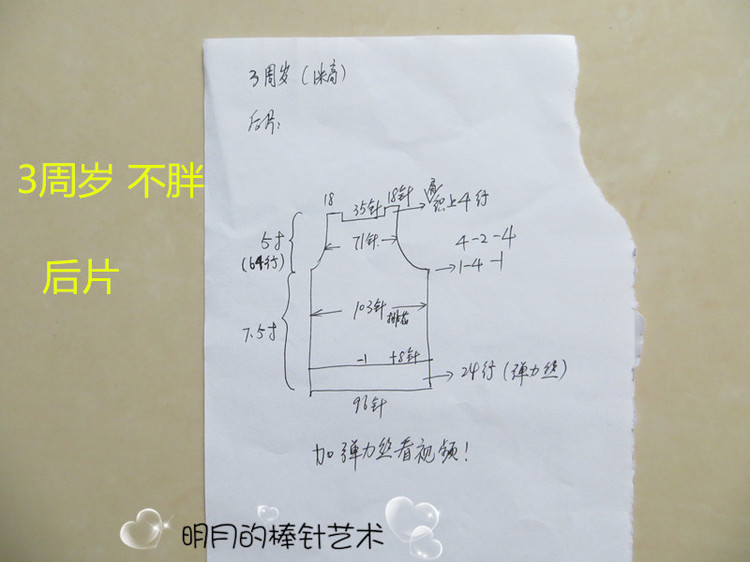 3周岁（1米高）
后片：
3周岁 不胖
后片
18
35针
18针
织上4行
5寸
(64行)
71针
4-2-4
1-4-1
103针
排花
7.5寸
-1 +8针
24行(弹力丝)
96针
加弹力丝看视频！
明月的棒针艺术